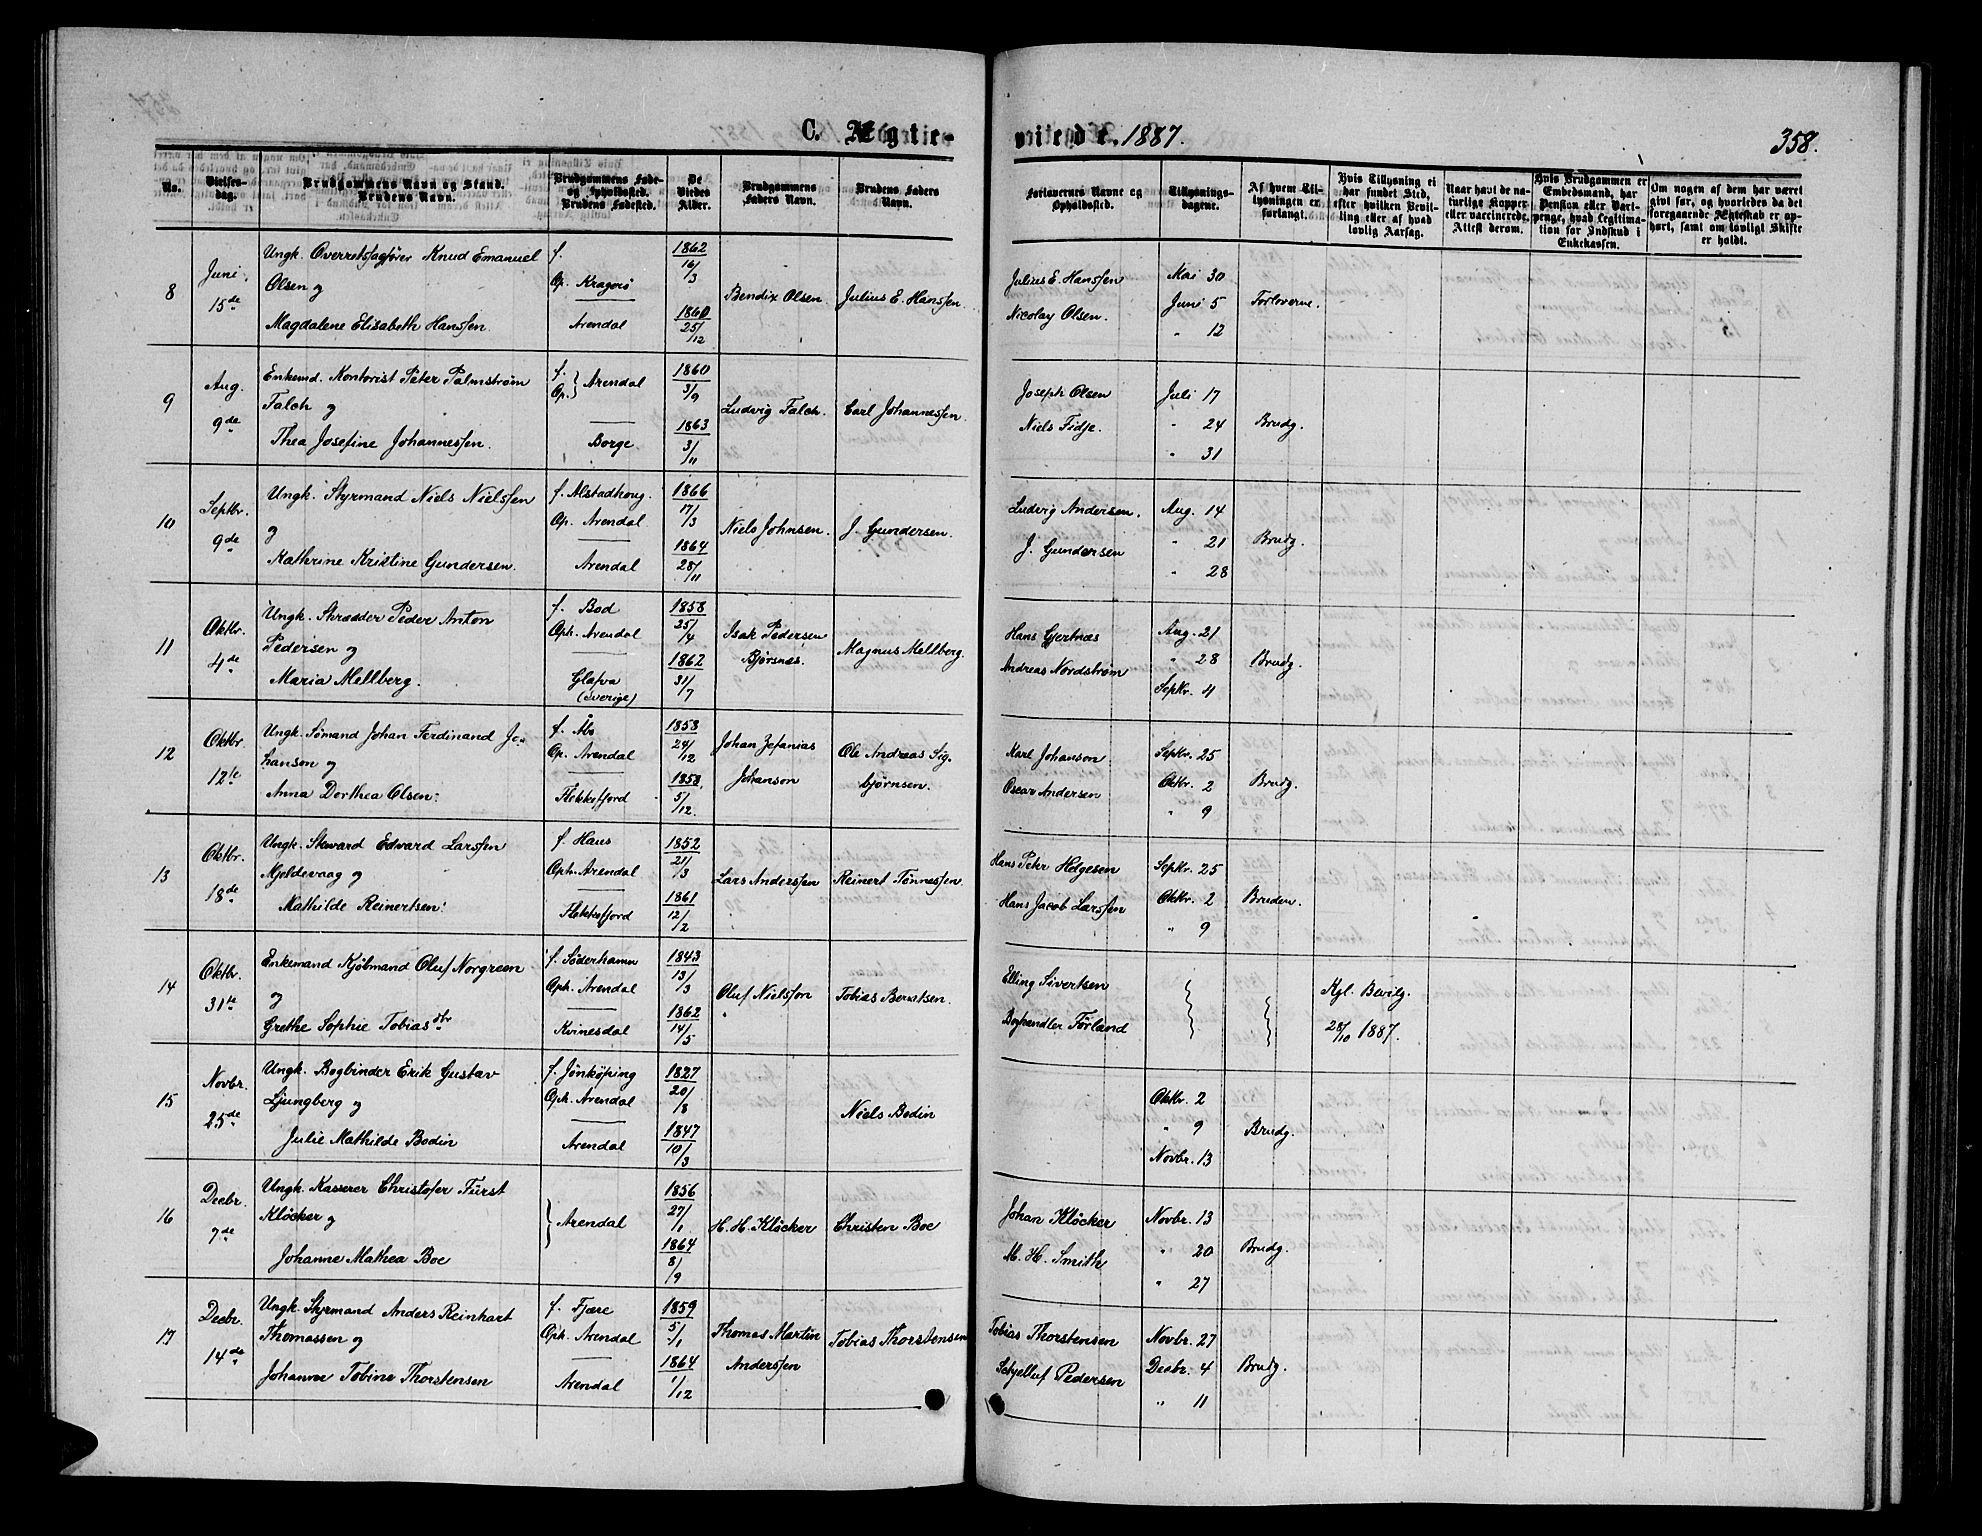 C. Ægte- viede. 1887. 358.
No. | Vielses-dag. | Brudgommens Navn og Stand. Brudens Navn. | Brudgommens Føde- og Opholdssted. Brudens Fødested. | De Viedes Alder. | Brudgommens Faders Navn. | Brudens Faders Navn. | Forlovernes Navne og Opholdssted. | Tillysnings-dagene. | Af hvem Til-lysningen er forlangt. | Hvis Tillysning ei har fundet Sted, efter hvilken Bevil-ling eller af hvad lovlig Aarsag. | Naar havt de na-turlige Kopper eller vaccinerede. Attest derom. | Hvis Brudgommen er Embedsmand, har Pension eller Vart-penge, hvad Legitima-tion for Indskud i Enkekassen. | Om nogen af dem har været givt før, og hvorledes da det foregaaende Ægteskab er op-hørt, samt om lovligt Skifte er holdt.
8 | Juni 15de | Ungk. Overretssagfører Knud Emanuel
Olsen og
Magdalene Elisabeth Hanssen. | f.
Op. Kragerø
Arendal | 1862 16/3
1860 25/12 | Bendix Olsen. | Julius E. Hanssen. | Julius E. Hanssen
Nicolay Olsen. | Mai 30
Juni 5
" 12 | Forloverne.
9 | Aug. 9de | Enkemd. Kontorist Peter Palmstrøm
Falch og
Thea Josefine Johannessen. | f.
Op. } Arendal
Borge | 1860 3/9
1863 3/11 | Ludvig Falch. | Carl Johannessen. | Joseph Olsen
Niels Fidje. | Juli 17
" 24
" 31 | Brudg.
10 | Septbr. 9de | Ungk. Styrmand Niels Nielssen
og
Kathrine Kristine Gundersen. | f. Alstadhoug.
Op. Arendal
Arendal | 1866 17/3
1864 28/11 | Niels Johnsen. | J. Gundersen. | Ludvig Andersen.
J. Gundersen | Aug. 14
" 21
" 28 | Brudg.
11 | Oktbr. 4de | Ungk. Skrædder Peder Anton
Pedersen og
Maria Mellberg. | f. Bod
Oph. Arendal
Glafva
(Sverige) | 1858 25/4
1862 31/7 | Isak Pedersen
Bjørsnæs. | Magnus Mellberg. | Hans Gjertnæs
Andreas Nordstrøm | Aug. 21
" 28
Septr. 4 | Brudg.
12 | Oktbr. 12te | Ungk. Sømand Johan Ferdinand Jo-
hanson og
Anna Dorthea Olsen. | f. Åbo
Op. Arendal
Flekkefjord | 1858 24/12
1858. 5/12. | Johan Zefanias
Johanson | Ole Andreas Sig-
bjørnsen. | Karl Johanson.
Oscar Andersen | Septr. 25
Oktr. 2
" 9 | Brudg.
13 | Oktbr. 18de | Ungk. Steward Edvard Larssen
Mjeldevaag og
Mathilde Reinertsen. | f. Haus
Oph. Arendal
Flekkefjord | 1852 21/3
1861 12/2 | Lars Anderssen | Reinert Tønnessen. | Hans Peter Helgesen
Hans Jacob Larssen | Septr. 25
Oktr. 2
" 9 | Bruden.
14 | Oktbr. 31te | Enkemand Kjøbmand Oluf Norgreen
og
Grethe Sophie Tobiasdtr | f. Söderhamn
Oph. Arendal
Kvinesdal | 1843 13/3
1862 14/5 | Oluf Nielsson | Tobias Berntsen. | Elling Sivertsen
Boghandler Førland | Kgl. Bevilg.
28/10 1887.
15 | Novbr. 25de | Ungk. Bogbinder Erik Gustav
Ljungberg og
Julie Mathilde Bodin | f. Jönköping
Oph. Arendal
Arendal | 1827 20/8
1847 10/3 | Niels Bodin | Oktbr. 2
" 9
Novbr. 13 | Brudg.
16 | Decbr. 7de | Ungk. Kasserer Christofer Fürst
Kløcker og
Johanne Mathea Boe | } Arendal | 1856 27/1
1864 8/9 | H. H. Kløcker | Christen Boe | Johan Kløcker
M. H. Smith | Novbr. 13
" 20
" 27 | Brudg.
17 | Decbr. 14de | Ungk. Styrmand Anders Reinhart
Thomassen og
Johanne Tobine Thorstensen | f. Fjære
Oph. Arendal
Arendal | 1859 5/1
1864 1/12 | Thomas Martin
Anderssen | Tobias Thorstensen | Tobias Thorstensen
Schjelluf Pedersen | Novbr. 27
Decbr. 4
" 11 | Brudg.